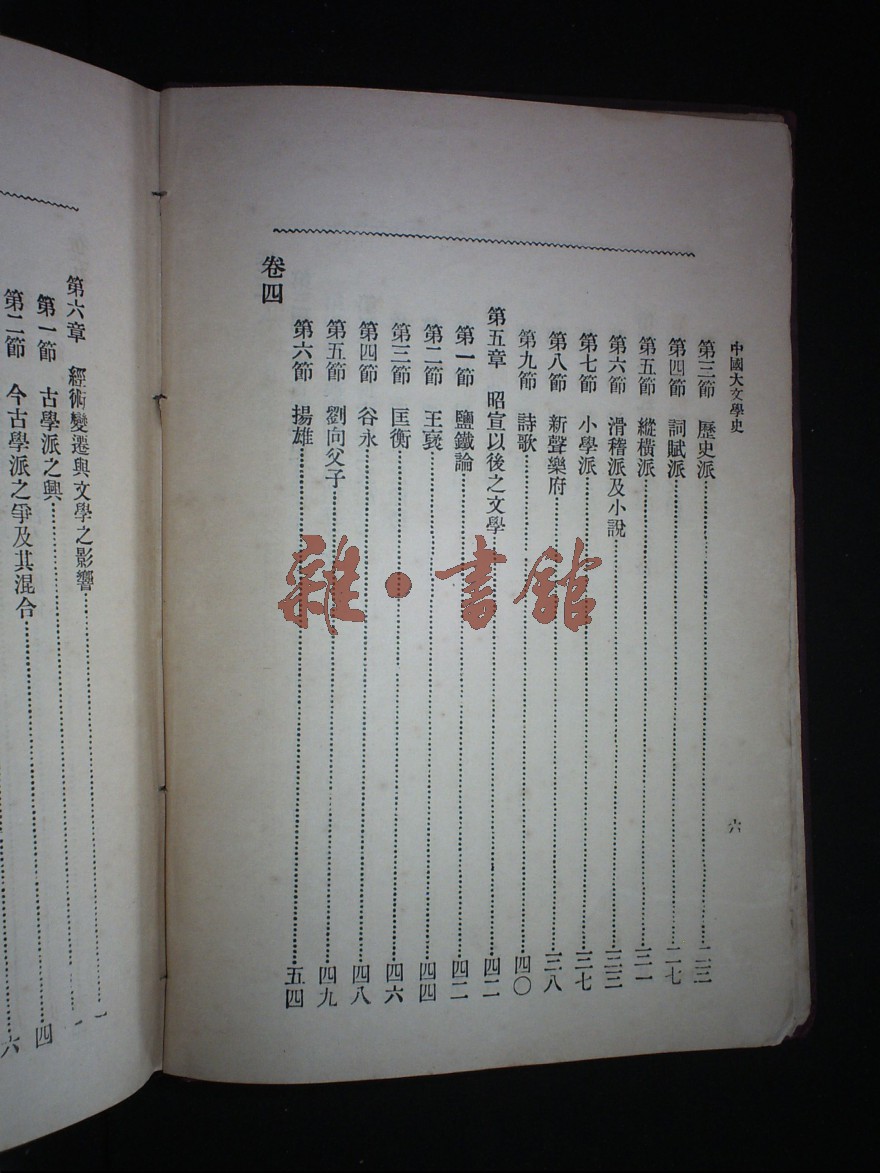 中國大文學史
六
第三節 歷史派 二三
第四節 詞賦派 二七
第五節 縱橫派 三一
第六節 滑稽派及小說 三三
第七節 小學派 三七
第八節 新聲樂府 三八
第九節 詩歌 四〇
第五章 昭宣以後之文學 四二
第一節 鹽鐵論 四二
第二節 王襃 四四
第三節 匡衡 四六
第四節 谷永 四八
第五節 劉向父子 四九
第六節 揚雄 五四
卷四
第六章 經術變遷與文學之影響 一
第一節 古學派之興 四
第二節 今古學派之爭及其混合 六
雜·書館